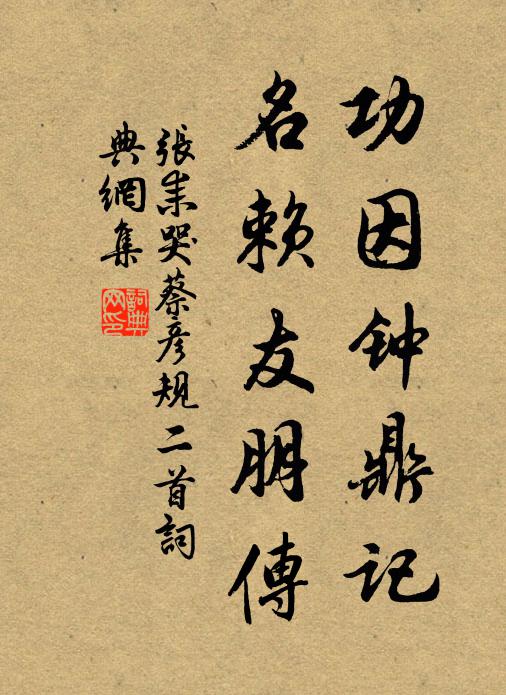 功因钟鼎记
名赖友朋傳
張耒哭蔡彦規二首詞
典網集
詞典網印